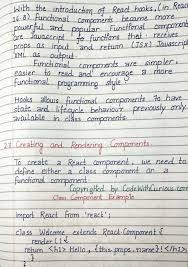 With the introduction of React hooks, (in React
16.8) Functional components became more
powerful and popular. Functional components
are Javascript functions that receives
props as input and return (JSX) Javascript
XML as output.
Functional components are simpler,
easier to read and encourage a more
Functional programming style
Hooks allows functional components to have
state and lifecycle behaviour previously only
available in class components.
2.3 Creating and Rendering Components
To create a React component, we need to
define either a class component or a
functional component.
Copyrighted by CodeWithCurious.com
Class Component Example
import React from 'react';
class Welcome extends React.Component {
render() {
return <h1> Hello, {this.props.name}! </h1>;
}